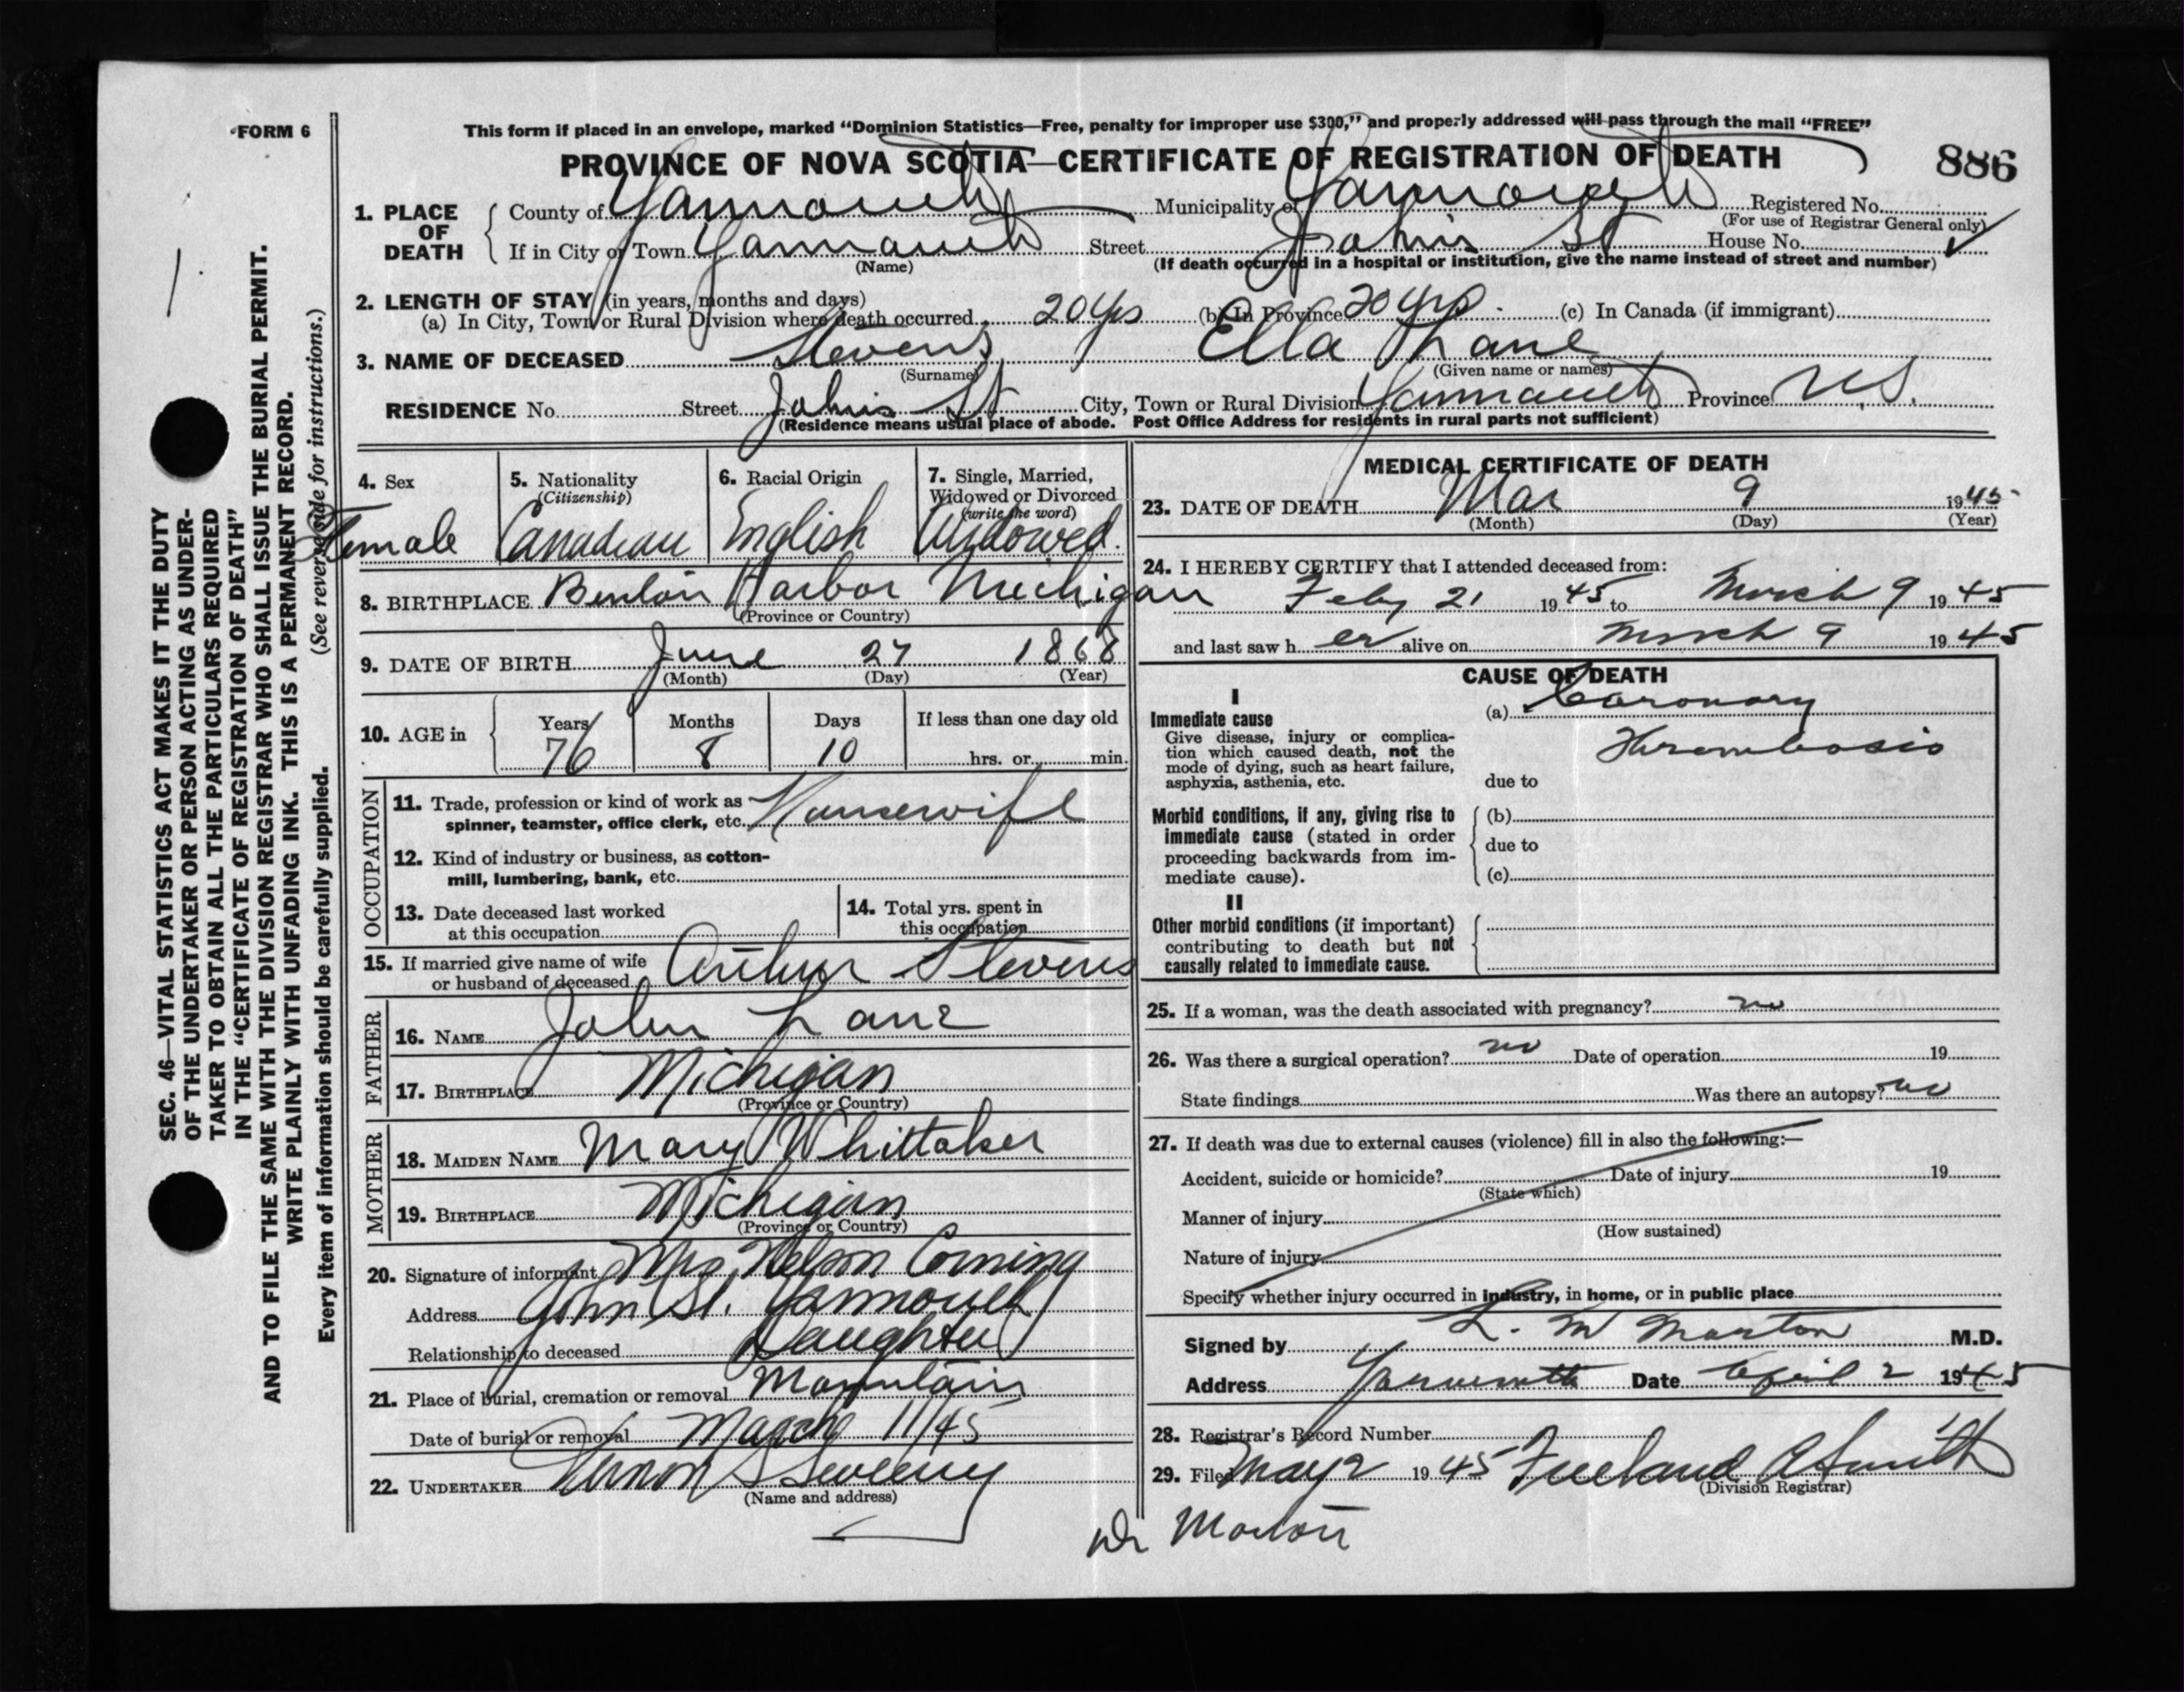 FORM 6
This form if placed in an envelope, marked “Dominion Statistics—Free, penalty for improper use $300,” and properly addressed will pass through the mail “FREE”
PROVINCE OF NOVA SCOTIA—CERTIFICATE OF REGISTRATION OF DEATH
886
1. PLACE OF DEATH
County of Yarmouth Municipality of Yarmouth Registered No.
(For use of Registrar General only)
If in City or Town Yarmouth Street Johns St House No.
(Name)
(If death occurred in a hospital or institution, give the name instead of street and number)
2. LENGTH OF STAY (in years, months and days)
(a) In City, Town or Rural Division where death occurred 20 yrs (b) In Province 20 yrs. (c) In Canada (if immigrant)
3. NAME OF DECEASED Stevens Ella Lane
(Surname) (Given name or names)
RESIDENCE No. Street Johns St City, Town or Rural Division Yarmouth Province N.S.
(Residence means usual place of abode. Post Office Address for residents in rural parts not sufficient)
4. Sex
Female
5. Nationality
(Citizenship)
Canadian
6. Racial Origin
English
7. Single, Married,
Widowed or Divorced
(write the word)
Widowed.
8. BIRTHPLACE Benton Harbor Michigan
(Province or Country)
9. DATE OF BIRTH June 27 1868
(Month) (Day) (Year)
10. AGE in
Years Months Days If less than one day old
76 8 10 hrs. or min.
OCCUPATION
11. Trade, profession or kind of work as
spinner, teamster, office clerk, etc. Housewife
12. Kind of industry or business, as cotton-
mill, lumbering, bank, etc.
13. Date deceased last worked
at this occupation
14. Total yrs. spent in
this occupation
15. If married give name of wife
or husband of deceased Arthur Stevens
FATHER
16. NAME John Lane
17. BIRTHPLACE Michigan
(Province or Country)
MOTHER
18. MAIDEN NAME Mary Whittaker
19. BIRTHPLACE Michigan
(Province or Country)
20. Signature of informant Mrs. Nelson Corning
Address John St. Yarmouth
Relationship to deceased Daughter
21. Place of burial, cremation or removal Mountain
Date of burial or removal March 11/45
22. UNDERTAKER Vernon S Sweeny
(Name and address)
MEDICAL CERTIFICATE OF DEATH
23. DATE OF DEATH Mar 9 1945
(Month) (Day) (Year)
24. I HEREBY CERTIFY that I attended deceased from:
Feby 21 1945 to March 9 1945
and last saw h er alive on March 9 1945
CAUSE OF DEATH
I
Immediate cause
Give disease, injury or complica-
tion which caused death, not the
mode of dying, such as heart failure,
asphyxia, asthenia, etc.
(a) Coronary
Thrombosis
due to
Morbid conditions, if any, giving rise to
immediate cause (stated in order
proceeding backwards from im-
mediate cause).
(b)
due to
(c)
II
Other morbid conditions (if important)
contributing to death but not
causally related to immediate cause.
25. If a woman, was the death associated with pregnancy? no
26. Was there a surgical operation? no Date of operation 19
State findings Was there an autopsy? no
27. If death was due to external causes (violence) fill in also the following:—
Accident, suicide or homicide? Date of injury 19
(State which)
Manner of injury
(How sustained)
Nature of injury
Specify whether injury occurred in industry, in home, or in public place
Signed by L. M Morton M.D.
Address Yarmouth Date April 2 1945
28. Registrar's Record Number
29. Filed May 2 1945 Freeland A Smith
(Division Registrar)
Dr Morton
SEC. 46—VITAL STATISTICS ACT MAKES IT THE DUTY
OF THE UNDERTAKER OR PERSON ACTING AS UNDER-
TAKER TO OBTAIN ALL THE PARTICULARS REQUIRED
IN THE “CERTIFICATE OF REGISTRATION OF DEATH”
AND TO FILE THE SAME WITH THE DIVISION REGISTRAR WHO SHALL ISSUE THE BURIAL PERMIT.
WRITE PLAINLY WITH UNFADING INK. THIS IS A PERMANENT RECORD.
Every item of information should be carefully supplied. (See reverse side for instructions.)